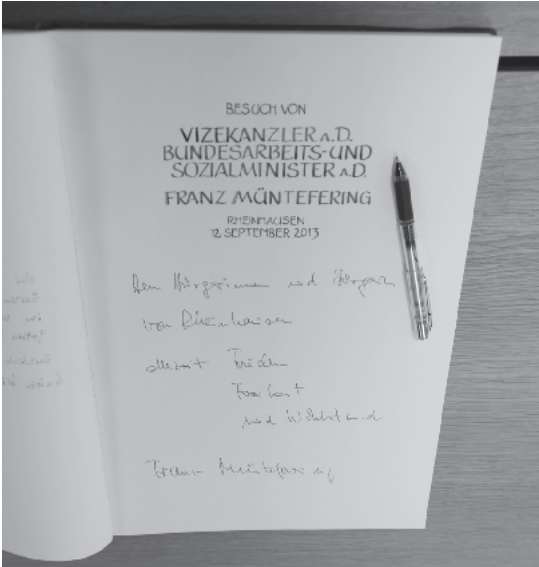 BESUCH VON
VIZEKANZLER A.D.
BUNDESARBEITS-UND
SOZIALMINISTER A.D.
FRANZ MÜNTEFERING
RHEINHAUSEN
12. SEPTEMBER 2013
Den Bürgerinnen und Bürgern
von Rheinhausen
allezeit Frieden
Freiheit
und Wohlstand
Franz Müntefering